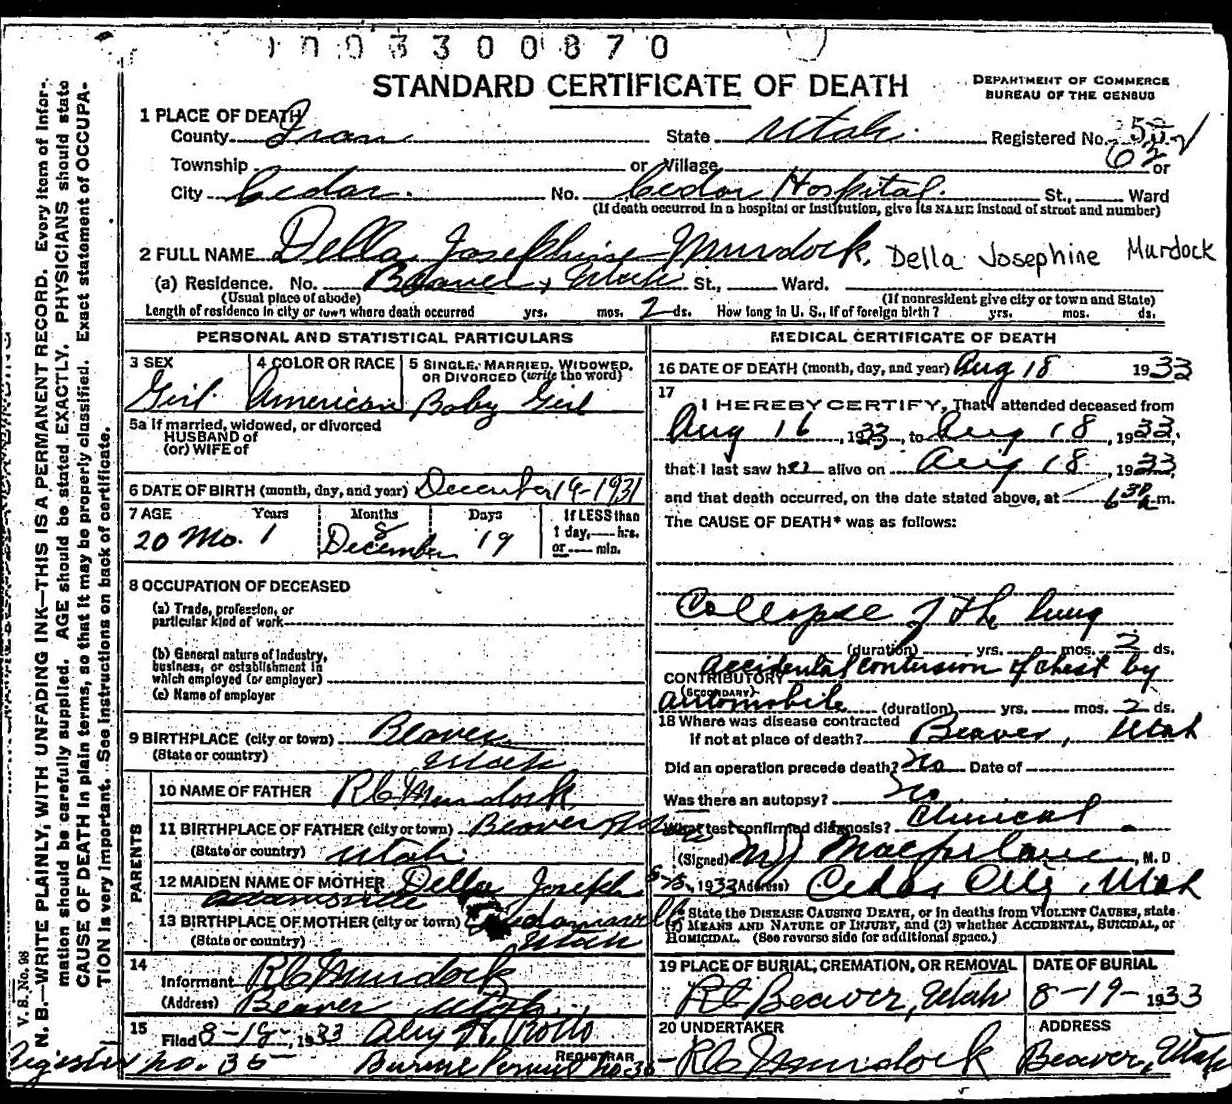 0 0 3 3 0 0 8 7 0
STANDARD CERTIFICATE OF DEATH
DEPARTMENT OF COMMERCE
BUREAU OF THE CENSUS
1 PLACE OF DEATH
County Iron State Utah. Registered No.
Township or Village or
City Cedar. No. Cedar Hospital. St., Ward
(If death occurred in a hospital or institution, give its NAME instead of street and number)
2 FULL NAME Della Josephine Murdock. Della Josephine Murdock
(a) Residence. No. Beaver, Utah St., Ward.
(Usual place of abode) (If nonresident give city or town and State)
Length of residence in city or town where death occurred yrs. mos. 2 ds. How long in U. S., if of foreign birth? yrs. mos. ds.
PERSONAL AND STATISTICAL PARTICULARS
3 SEX 4 COLOR OR RACE 5 SINGLE, MARRIED, WIDOWED,
OR DIVORCED (write the word)
Girl American Baby Girl
5a If married, widowed, or divorced
HUSBAND of
(or) WIFE of
6 DATE OF BIRTH (month, day, and year) December 19-1931
7 AGE Years Months Days If LESS than
1 day, hrs.
or min.
20 Mo. 1 8 December 19
8 OCCUPATION OF DECEASED
(a) Trade, profession, or
particular kind of work
(b) General nature of industry,
business, or establishment in
which employed (or employer)
(c) Name of employer
9 BIRTHPLACE (city or town) Beaver
(State or country) Utah
PARENTS
10 NAME OF FATHER RC Murdock
11 BIRTHPLACE OF FATHER (city or town) Beaver
(State or country) Utah
12 MAIDEN NAME OF MOTHER Della Joseph
Adamsville
13 BIRTHPLACE OF MOTHER (city or town) Adamsville
(State or country) Utah
14
Informant RC Murdock
(Address) Beaver Utah
15
Filed 8-18-, 1933
REGISTRAR
Registered no. 35 Burial Permit no. 35
MEDICAL CERTIFICATE OF DEATH
16 DATE OF DEATH (month, day, and year) Aug 18 1933
17
I HEREBY CERTIFY, That I attended deceased from
Aug 16, 1933, to Aug 18, 1933,
that I last saw her alive on Aug 18, 1933
and that death occurred, on the date stated above, at 6 30 a m.
The CAUSE OF DEATH* was as follows:
Collapse of the lung
(duration) yrs. mos. 2 ds.
Accidental contusion of chest by
CONTRIBUTORY
(SECONDARY)
automobile (duration) yrs. mos. 2 ds.
18 Where was disease contracted
If not at place of death? Beaver, Utah
Did an operation precede death? No Date of
Was there an autopsy? No
What test confirmed diagnosis? Clinical
(Signed) Macfarlane, M. D
1933 (Address) Cedar City, Utah
* State the DISEASE CAUSING DEATH, or in deaths from VIOLENT CAUSES, state
(1) MEANS AND NATURE OF INJURY, and (2) whether ACCIDENTAL, SUICIDAL, or
HOMICIDAL. (See reverse side for additional space.)
19 PLACE OF BURIAL, CREMATION, OR REMOVAL DATE OF BURIAL
RC Beaver, Utah 8-19-1933
20 UNDERTAKER ADDRESS
RC Murdock Beaver, Utah
V. S. No. 98
N. B.—WRITE PLAINLY, WITH UNFADING INK—THIS IS A PERMANENT RECORD. Every item of infor-
mation should be carefully supplied. AGE should be stated EXACTLY. PHYSICIANS should state
CAUSE OF DEATH in plain terms, so that it may be properly classified. Exact statement of OCCUPA-
TION is very important. See instructions on back of certificate.